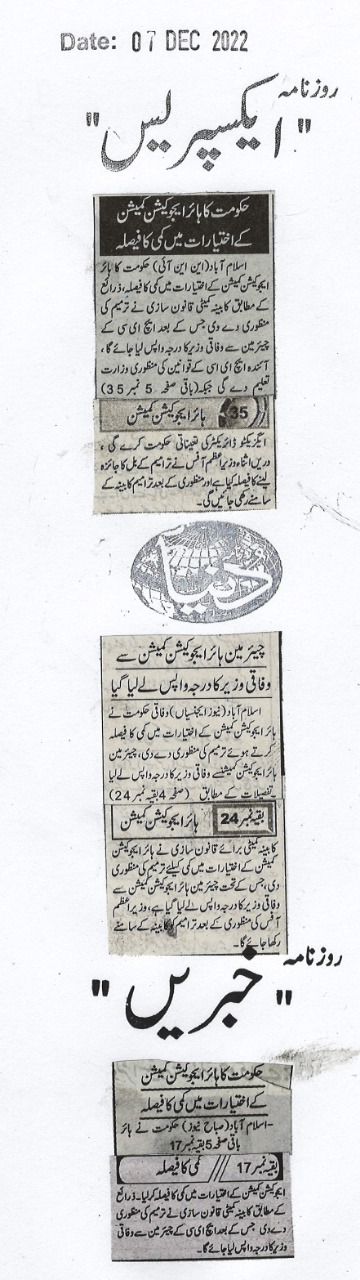 Date: 07 DEC 2022
روزنامہ
"ایکسپریس"
حکومت کا ہائر ایجوکیشن کمیشن
کے اختیارات میں کمی کا فیصلہ
اسلام آباد (این این آئی) حکومت کا ہائر
ایجوکیشن کمیشن کے اختیارات میں کمی کا فیصلہ، ذرائع
کے مطابق کابینہ کمیٹی قانون سازی نے ترمیم کی
منظوری دے دی جس کے بعد ایچ ای سی کے
چیئرمین سے وفاقی وزیر کا درجہ واپس لیا جائے گا،
آئندہ ایچ ای سی کے قوانین کی منظوری وزارت
تعلیم دے گی جبکہ (باقی صفحہ 5 نمبر 35)
35 ہائر ایجوکیشن کمیشن
ایگزیکٹو ڈائریکٹر کی تعیناتی حکومت کرے گی ،
دریں اثناء وزیراعظم آفس نے ترامیم کے بل کا جائزہ
لینے کا فیصلہ کیا ہے اور منظوری کے بعد ترامیم کابینہ کے
سامنے رکھی جائیں گی۔
دنیا
چیئرمین ہائر ایجوکیشن کمیشن سے
وفاقی وزیر کا درجہ واپس لے لیا گیا
اسلام آباد (نیوز ایجنسیاں) وفاقی حکومت نے
ہائر ایجوکیشن کمیشن کے اختیارات میں کمی کا فیصلہ
کرتے ہوئے ترمیم کی منظوری دے دی، چیئرمین
ہائر ایجوکیشن کمیشن سے وفاقی وزیر کا درجہ واپس لے لیا
تفصیلات کے مطابق (صفحہ 4 بقیہ نمبر 24)
بقیہ نمبر 24 ہائر ایجوکیشن کمیشن
کابینہ کمیٹی برائے قانون سازی نے ہائر ایجوکیشن
کمیشن کے اختیارات میں کمی کیلئے ترمیم کی منظوری
دی، جس کے تحت چیئرمین ہائر ایجوکیشن کمیشن سے
وفاقی وزیر کا درجہ واپس لے لیا گیا ہے، وزیراعظم
آفس کی منظوری کے بعد ترامیم کو کابینہ کے سامنے
رکھا جائے گا۔
روزنامہ
"خبریں"
حکومت کا ہائر ایجوکیشن کمیشن
کے اختیارات میں کمی کا فیصلہ
اسلام آباد (صباح نیوز) حکومت نے ہائر
باقی صفحہ 5 بقیہ نمبر 17
بقیہ نمبر 17 کمی کا فیصلہ
ایجوکیشن کمیشن کے اختیارات میں کمی کا فیصلہ کر لیا۔ ذرائع
کے مطابق کابینہ کمیٹی قانون سازی نے ترمیم کی منظوری
دے دی جس کے بعد ایچ ای سی کے چیئرمین سے وفاقی
وزیر کا درجہ واپس لیا جائے گا۔